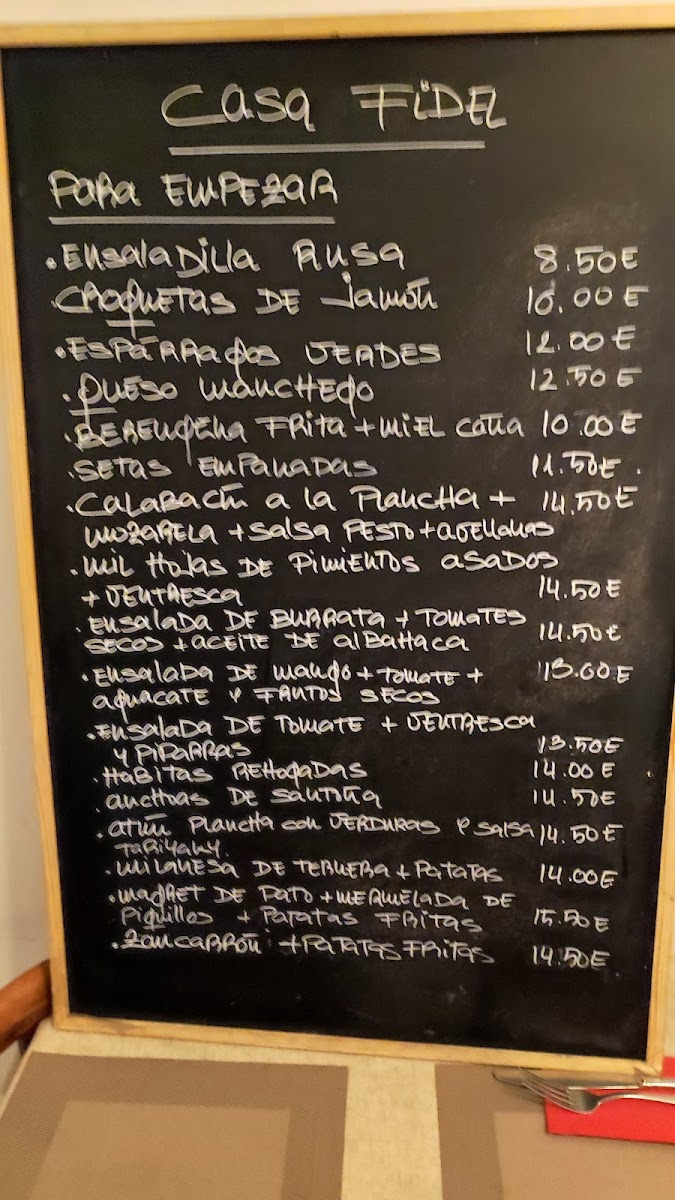 Casa FiDEL
PARA EMPEZAR
.Ensaladilla Rusa 8.50€
CROQUETAS DE Jamón 10.00€
.ESPÁRRAGOS VERDES 12.00€
.QUESO MANCHEGO 12.50€
.BERENGENA FRITA + MIEL caña 10.00€
.SETAS EMPANADAS 11.50€.
.CALABACÍN a la PLANCHA + 14.50€
MOZARELA + SALSA PESTO + avellanas
.MIL HOJAS DE PIMIENTOS ASADOS
+ VENTRESCA 14.50€
.ENSALADA DE BURRATA + TOMATES
SECOS + ACEITE DE albahaca 14.50€
.ENSALADA DE mango + TOMATE + 13.00€
aguacate y FRUTOS SECOS
.ENSALADA DE TOMATE + VENTRESCA
y PIPARRAS 13.50€
.HABITAS REHOGADAS 14.00€
.anchoas DE SANTOÑA 14.50€
.atún PLANCHA con VERDURAS y Salsa 14.50€
TARIYAKY.
.MILANESA DE TERNERA + PATATAS 14.00€
.MAGRET DE PATO + MERMELADA DE
PIQUILLOS + PATATAS FRITAS 15.50€
.ZANCARRÓN + PATATAS FRITAS 14.50€